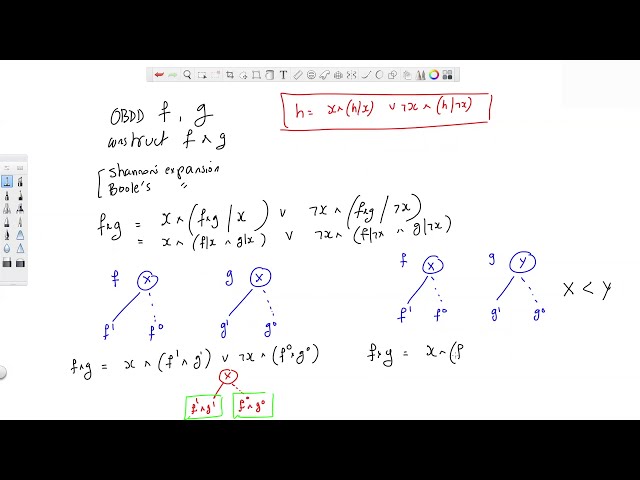 OBDD f , g
construct f ∧ g
h = x ∧ (h|x) ∨ ¬x ∧ (h|¬x)
Shannon's expansion
Boole's "
f∧g = x ∧ (f∧g / x) ∨ ¬x ∧ (f∧g / ¬x)
= x ∧ (f|x ∧ g|x) ∨ ¬x ∧ (f|¬x ∧ g|¬x)
f X g X
f¹ f⁰ g¹ g⁰
f X g Y X < Y
f¹ f⁰ g¹ g⁰
f∧g = x ∧ (f¹ ∧ g¹) ∨ ¬x ∧ (f⁰ ∧ g⁰)
X
f¹ ∧ g¹ f⁰ ∧ g⁰
f∧g = x ∧ (f